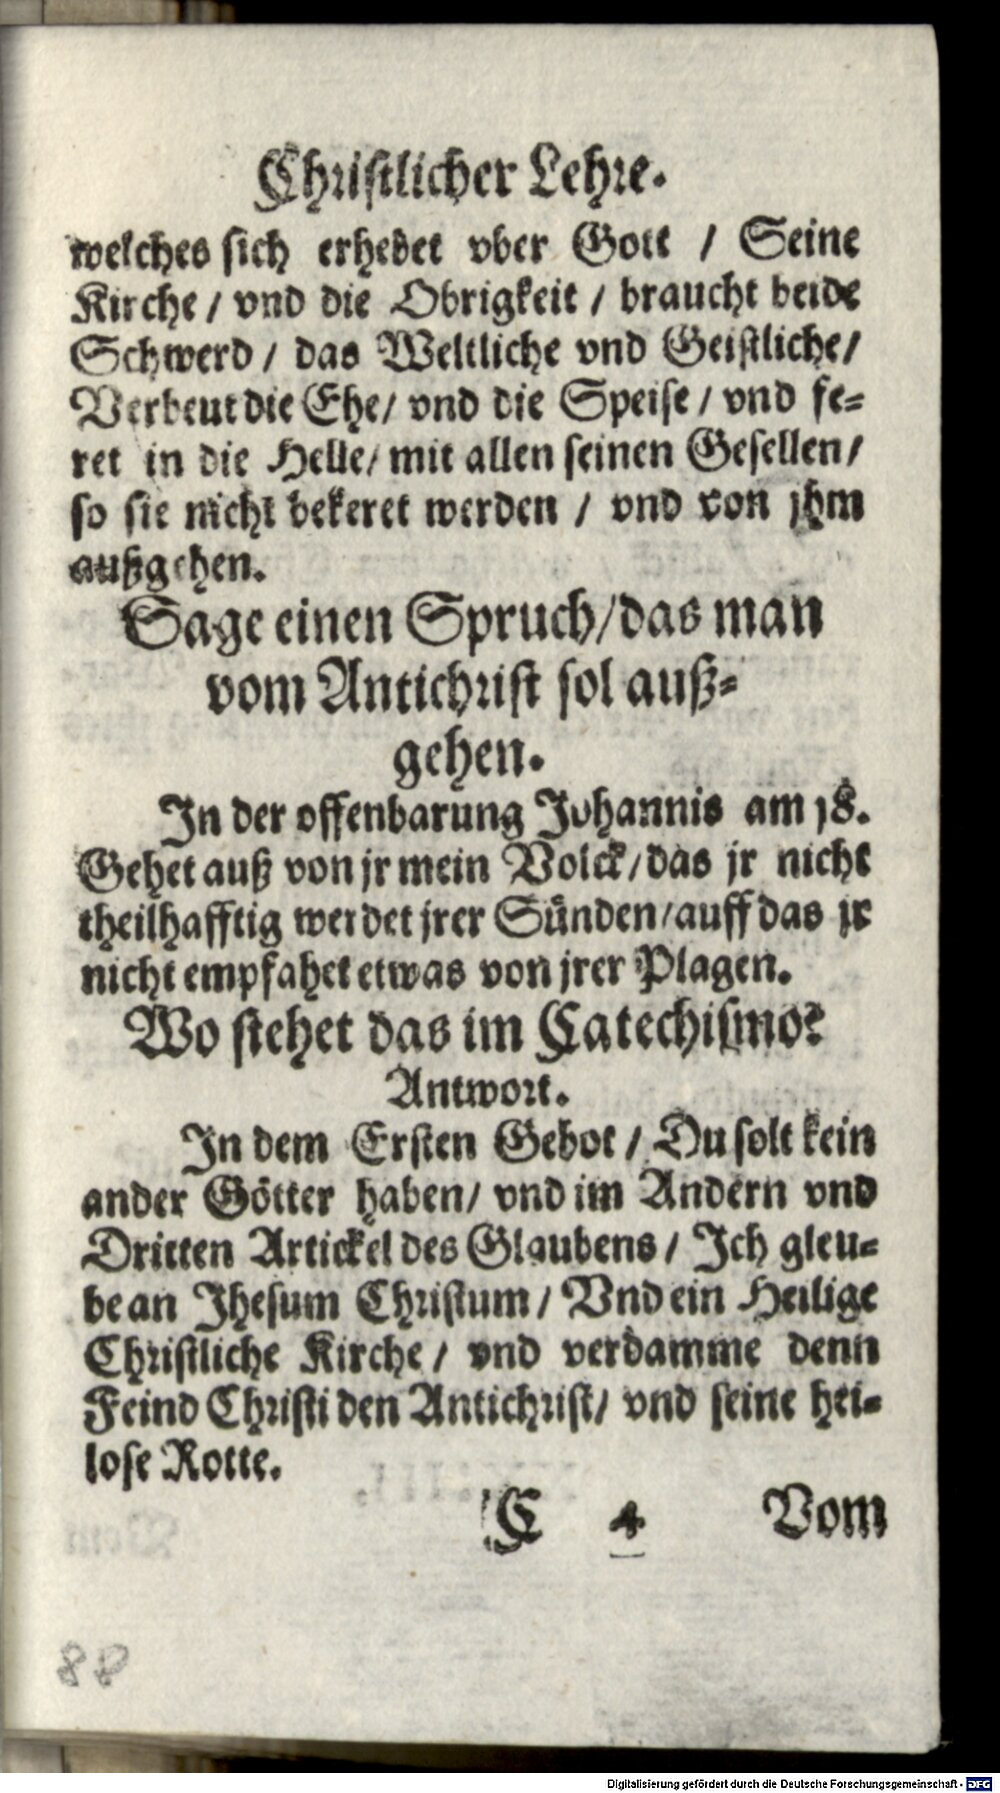 Christlicher Lehre.
welches sich erhebet vber Gott / Seine
Kirche / vnd die Obrigkeit / braucht beide
Schwerd / das Weltliche vnd Geistliche /
Verbeut die Ehe / vnd die Speise / vnd fe=
ret in die Helle / mit allen seinen Gesellen /
so sie nicht bekeret werden / vnd von jhm
außgehen.
Sage einen Spruch / das man
vom Antichrist sol auß=
gehen.
In der offenbarung Johannis am 18.
Gehet auß von jr mein Volck / das jr nicht
theilhafftig werdet jrer Sünden / auff das jr
nicht empfahet etwas von jrer Plagen.
Wo stehet das im Catechismo?
Antwort.
In dem Ersten Gebot / Du solt kein
ander Götter haben / vnd im Andern vnd
Dritten Artickel des Glaubens / Ich gleu=
be an Jhesum Christum / Vnd ein Heilige
Christliche Kirche / vnd verdamme denn
Feind Christi den Antichrist / vnd seine hei=
lose Rotte.
C 4 Vom
88
Digitalisierung gefördert durch die Deutsche Forschungsgemeinschaft - DFG